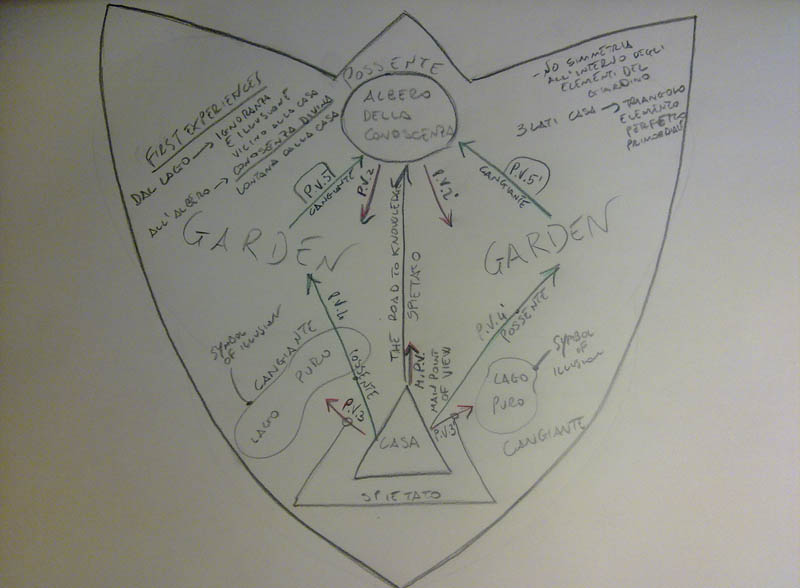 FIRST EXPERIENCES
DAL LAGO → IGNORANZA
E ILLUSIONE
VICINO ALLA CASA
ALL'ALBERO → CONOSCENZA DIVINA
LONTANA DALLA CASA
POSSENTE
ALBERO
DELLA
CONOSCENZA
- NO SIMMETRIA
ALL'INTERNO DEGLI
ELEMENTI DEL
GIARDINO
3 LATI CASA → TRIANGOLO
ELEMENTO
PERFETTO
PRIMORDIALE
P.V.5
CANGIANTE
P.V.2
P.V.2'
P.V.5'
CANGIANTE
GARDEN
GARDEN
THE ROAD TO KNOWLEDGE
SPIETATO
P.V.4
POSSENTE
P.V.4'
POSSENTE
SYMBOL
OF ILLUSION
CANGIANTE
LAGO PURO
M.P.V.
MAIN POINT
OF VIEW
SYMBOL
OF
ILLUSION
LAGO
PURO
CANGIANTE
P.V.3
P.V.3'
CASA
SPIETATO